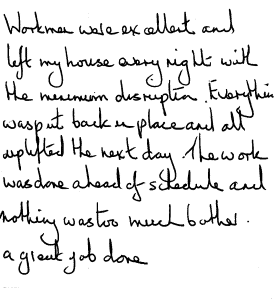 Workmen were excellent and
left my house every night with
the minimum disruption. Everythin
was put back in place and all
uplifted the next day. The work
was done ahead of schedule and
nothing was too much bother.
a great job done